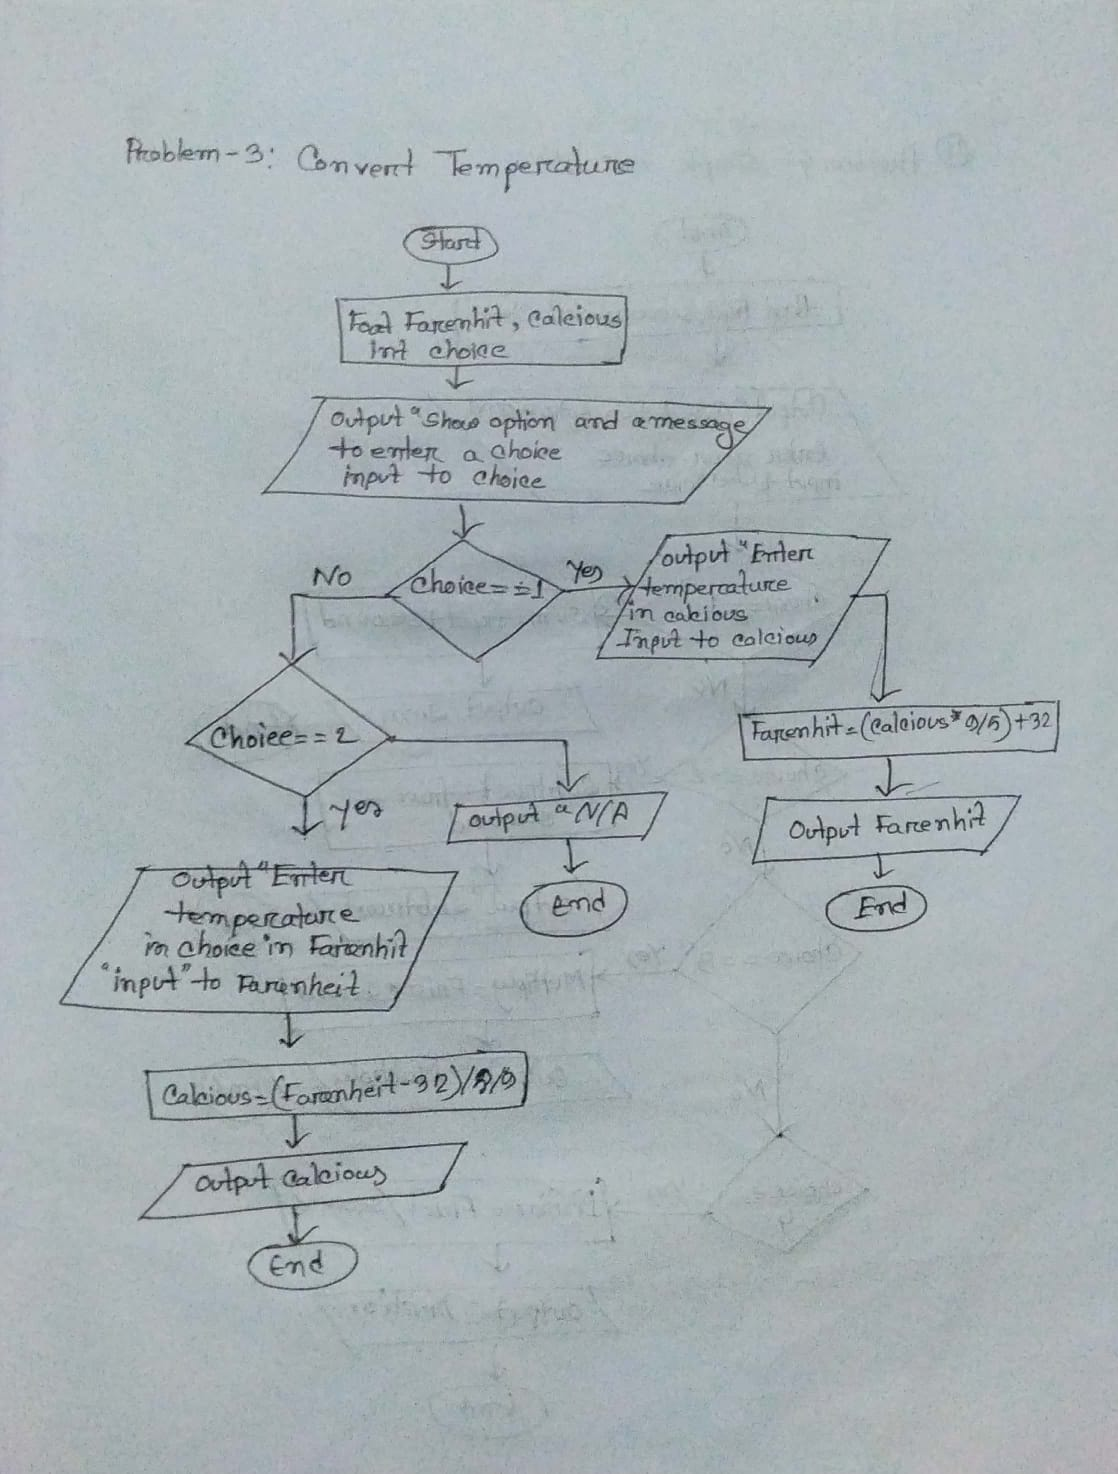 Problem-3: Convert Temperature
Start
Foat Farenhit, Calcious
Int choice
Output "Show option and a message
to enter a choice
input to choice
Choice==1
Yes
No
output "Enter
temperature
in calcious
Input to calcious
Farenhit=(Calcious*9/5)+32
Output Farenhit
End
Choice==2
output "N/A
End
Yes
Output "Enter
temperature
in choice in Farenhit
"input" to Farenheit.
Calcious=(Farenheit-32)/
Output Calcious
End